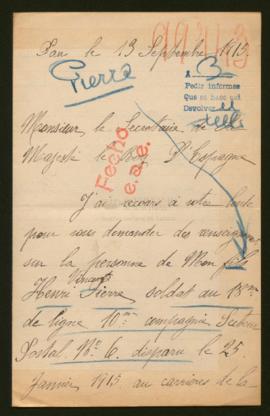 Pau le 13 Septembre 1915.
Pierre
A 3
Pedir informes
Que se hace aquí
Devolver
Monsieur le Secretaire de Sa
Majesté le Roy d'Espagne
Fecho
e.a.e.
J'ai recours à votre bonté
pour vous demander des renseignements
sur la personne de Mon fils
Henri Vincent Pierre soldat au 18me
de ligne 10me compagnie Secteur
Postal No 6. disparu le 25
Janvier 1915 au carrières de la